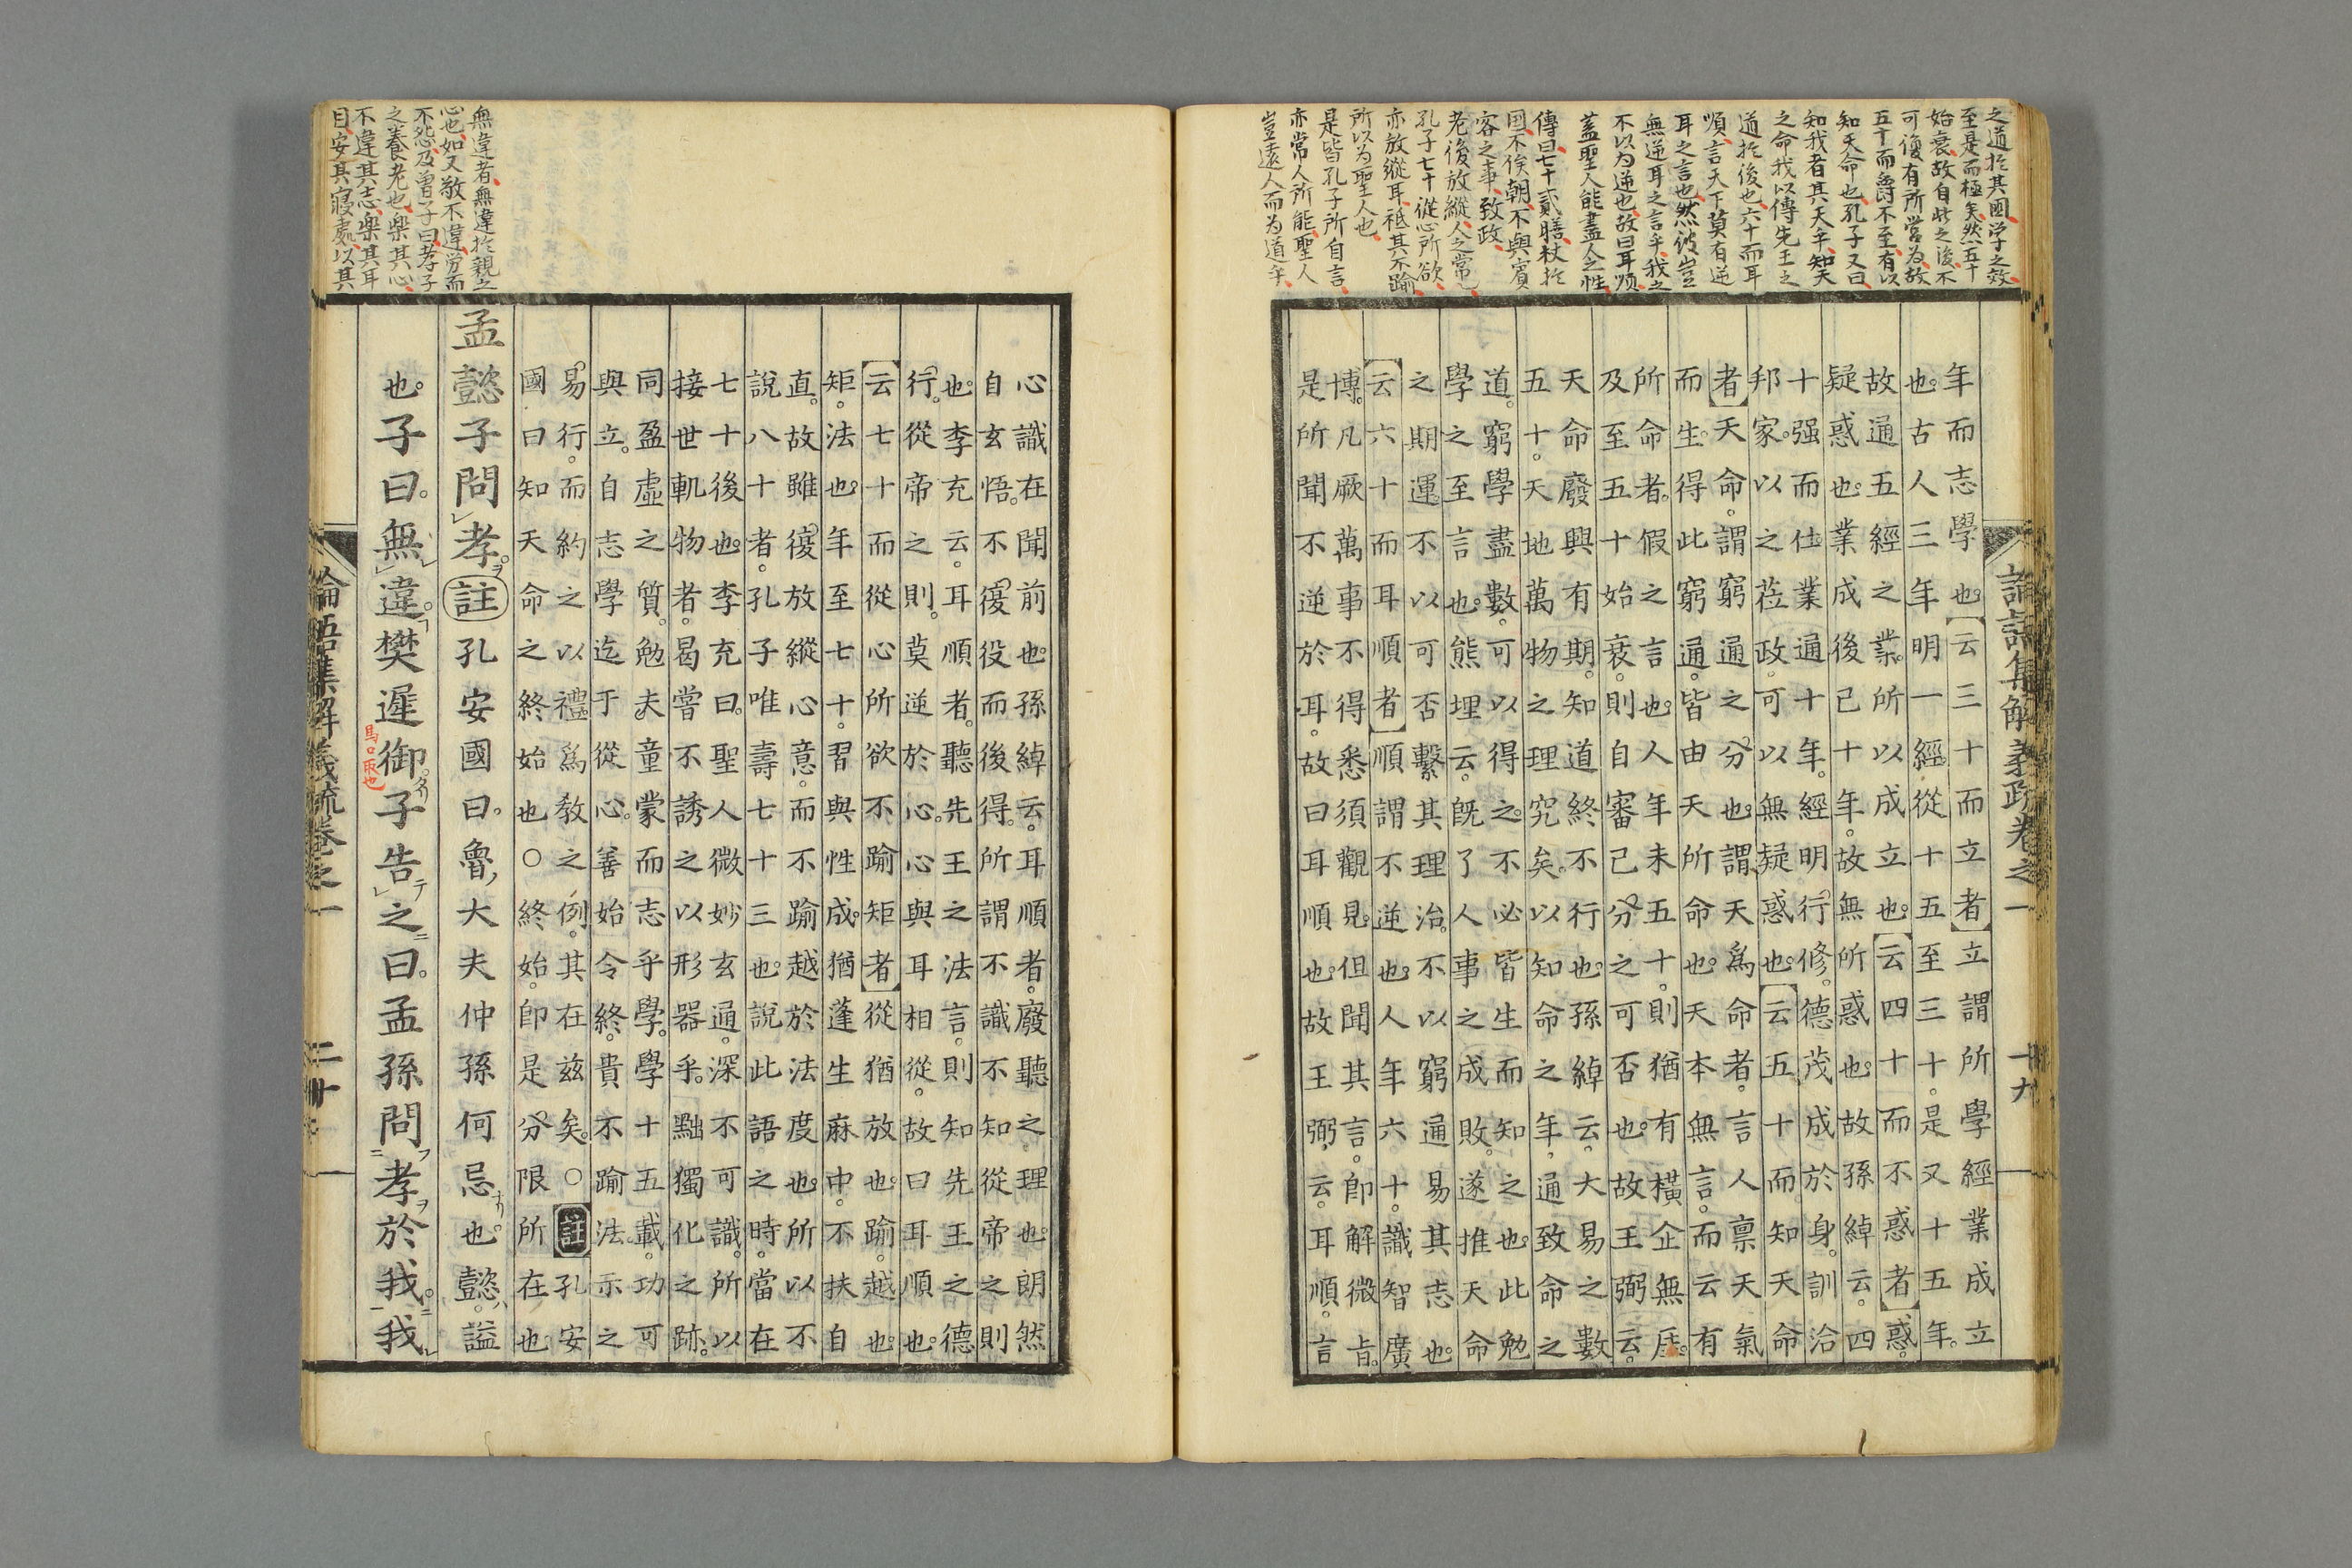 之道於其國、学之效
至是而極矣、然五十
始衰、故自此之後、不
可復有所営為、故
五十而爵不至、有以
知天命也、孔子又曰
知我者其天乎、知天
之命我以傳先王之
道於後也、六十而耳
順、言天下莫有逆
耳之言也、然彼豈
無逆耳之言乎、我之
不以為逆也、故曰耳順
蓋聖人能盡人之性、
傳曰七十貳膳、杖於
国、不俟朝、不與賓
客之事、致政
老後放縦、人之常也、
孔子七十従心所欲、
亦放縦耳、祗其不踰
所以為聖人也、
是皆孔子所自言、
亦常人所能、聖人
豈遠人而為道乎、
論語集解義疏卷之一 十九
年而志學也。【云三十而立者】立謂所學經業成立
也。古人三年明一經從十五至三十。是又十五年。
故通五經之業。所以成立也。【云四十而不惑者】惑。
疑惑也。業成後已十年。故無所惑也。故孫綽云。四
十强而仕業通十年。經明行修。德茂成於身。訓洽
邦家。以之莅政。可以無疑惑也。【云五十而知天命
者】天命。謂窮通之分也。謂天爲命者。言人禀天氣
而生。得此窮通。皆由天所命也。天本無言。而云有
所命者。假之言也。人年未五十。則猶有橫企無厓。
及至五十始衰。則自審己分之可否也。故王弼云。
天命廢興有期。知道終不行也。孫綽云。大易之數
五十。天地萬物之理究矣。以知命之年。通致命之
道。窮學盡數。可以得之。不必皆生而知之也。此勉
學之至言也。熊埋云。旣了人事之成敗。遂推天命
之期運不以可否繫其理治。不以窮通易其志也。
【云六十而耳順者】順謂不逆也。人年六十。識智廣
博。凡厥萬事不得悉須觀見。但聞其言。卽解微旨。
是所聞不逆於耳。故曰耳順也。故王弼云。耳順。言
無違者、無違於親之
心也、如又敬不違、労而
不怨、及曽子曰、孝子
之養老也、楽其心、
不違其志、楽其耳
目、安其寝處、以其
心識在聞前也。孫綽云。耳順者。廢聽之理也。朗然
自玄悟。不復役而後得。所謂不識不知從帝之則
也。李充云。耳順者。聽先王之法言。則知先王之德
行。從帝之則。莫逆於心。心與耳相從。故曰耳順也。
【云七十而從心所欲不踰矩者】從猶放也。踰。越也。
矩。法也。年至七十。習與性成。猶蓬生麻中。不扶自
直。故雖復放縱心意。而不踰越於法度也。所以不
說八十者。孔子唯壽七十三也。說此語之時。當在
七十後也。李充曰。聖人微妙玄通。深不可識。所以
接世軌物者。曷嘗不誘之以形器乎。黜獨化之跡。
同盈虛之質。勉夫童蒙而志乎學。學十五載。功可
與立。自志學迄于從心。善始令終。貴不踰法。示之
易行。而約之以禮爲敎之例。其在茲矣。○註孔安
國曰知天命之終始也○終始。卽是分限所在也
孟懿子問孝。ヲ註孔安國曰。魯大夫仲孫何忌也。懿。謚
也。子曰。無違。樊遲御子告之曰。孟孫問孝於我。我
馬口取也
論語集解義疏卷之一 二十